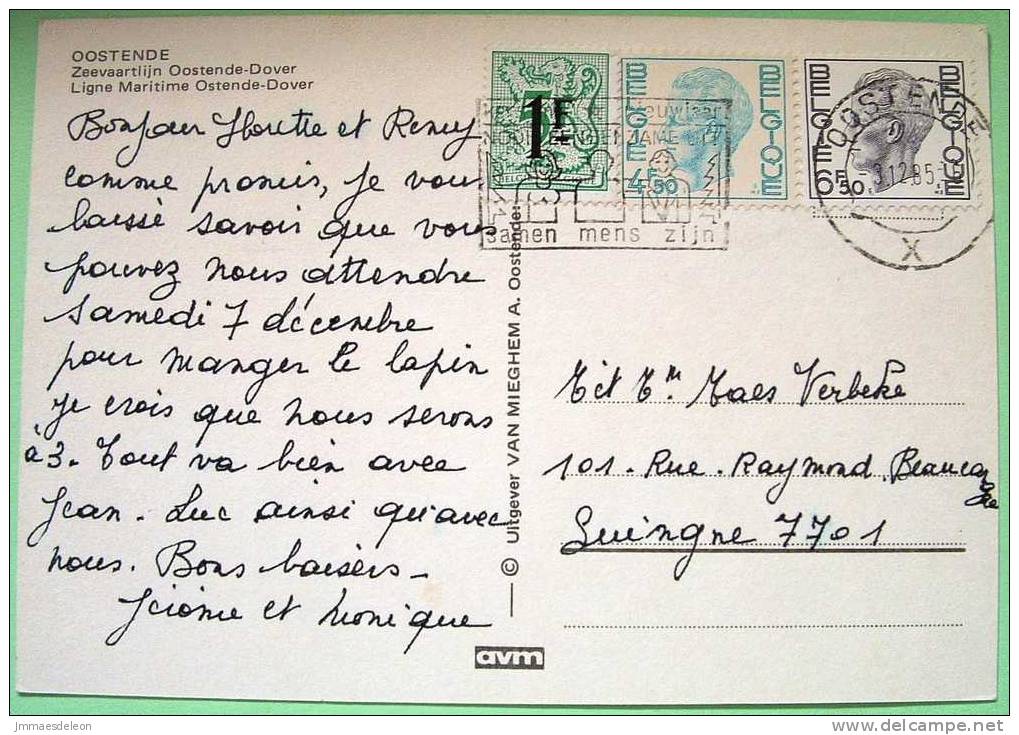 OOSTENDE
Zeevaartlijn Oostende-Dover
Ligne Maritime Ostende-Dover
Bonjour et Remy
comme promis, je vous
laisse savoir que vous
pouvez nous attendre
samedi 7 décembre
pour manger le lapin
je crois que nous serons
à 3. Tout va bien avec
Jean. Luc ainsi qu'avec
nous. Bons baisers -
Jérôme et Monique
© Uitgever VAN MIEGHEM A. Oostende
avm
1F
BELGIE BELGIQUE
4F50
BELGIE BELGIQUE
6F50
samen mens zijn
OOSTENDE
-3.12.85-
X
Maes Verbeke
101. Rue. Raymond Beaucarne
Luingne 7701
jmmaesdeleon
www.delcampe.net